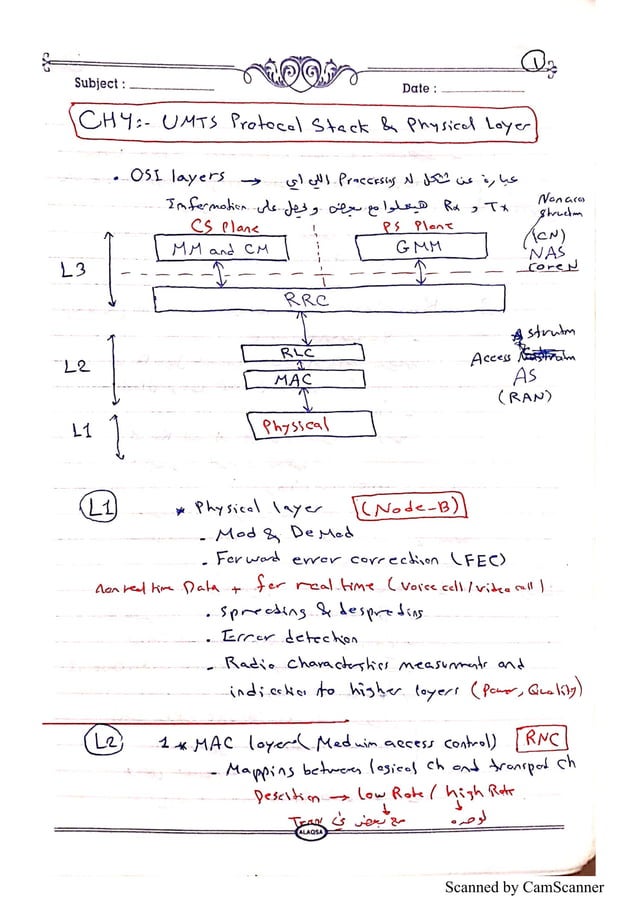 1
Subject :
Date :
CH4:- UMTS Protocol Stack & Physical Layer
• OSI layers → عبارة عن شكل ال Processing اللي اي
Information هيعملوا مع بعض و على Rx و Tx
CS Plane
PS Plane
(CN)
NAS
Core N
MM and CM
GMM
L3
RRC
RLC
L2
MAC
Access
AS
(RAN)
L1
Physical
L1
* Physical layer (Node-B)
- Mod & DeMod
- Forword error correction (FEC)
non real time Data + for real time (voice call / video call)
• Spreeding & despreding
• Error detection
- Radio Characterstics measurments and
indication to higher layers (Power, Quality)
L2
1 * MAC layer (Meduim access control) RNC
- Mapping between logical ch and transport ch
→ low Rate / high Rate
مع بعض في
لوحده
ALAQSA
Scanned by CamScanner